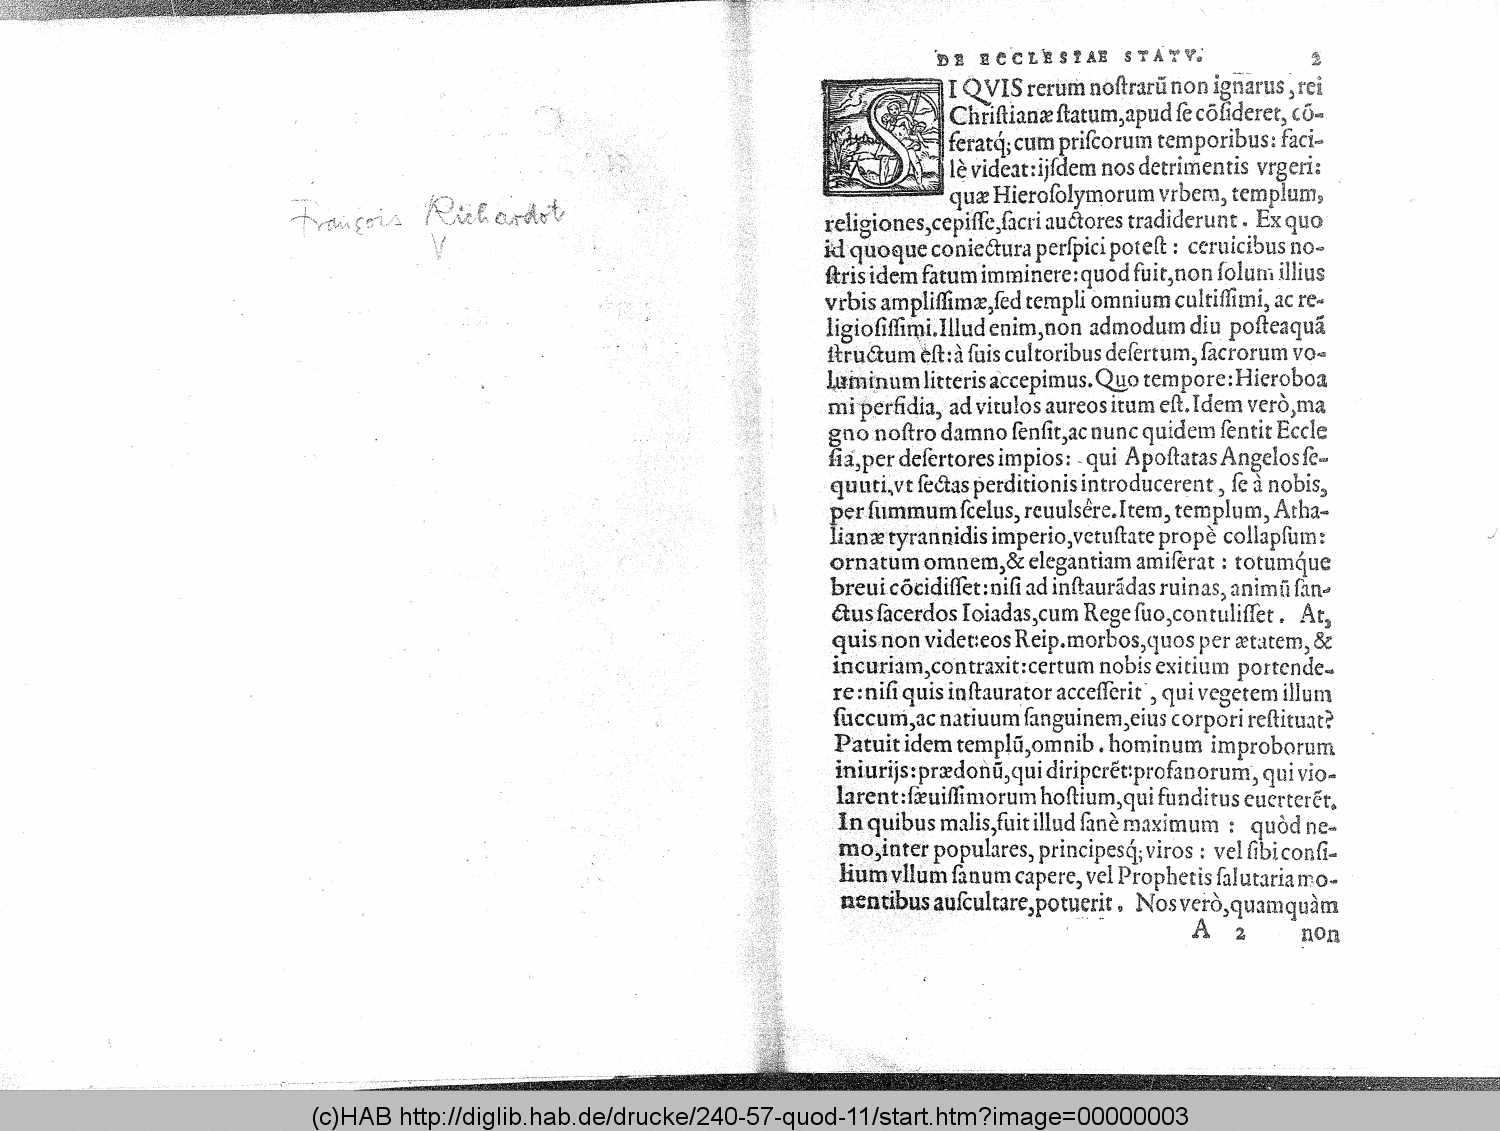 François Richardot
V
DE ECCLESIAE STATV. 2
SI QVIS rerum noſtrarū non ignarus, rei
Chriſtianæ ſtatum, apud ſe cōſideret, cō-
feratq́; cum priſcorum temporibus: faci-
lè videat: ijſdem nos detrimentis vrgeri:
quæ Hieroſolymorum vrbem, templum,
religiones, cepiſſe, ſacri auctores tradiderunt. Ex quo
id quoque coniectura perſpici poteſt: ceruicibus no-
ſtris idem fatum imminere: quod fuit, non ſolum illius
vrbis ampliſſimæ, ſed templi omnium cultiſſimi, ac re-
ligioſiſſimi. Illud enim, non admodum diu poſteaquā
ſtructum eſt: à ſuis cultoribus deſertum, ſacrorum vo-
luminum litteris accepimus. Quo tempore: Hieroboa
mi perfidia, ad vitulos aureos itum eſt. Idem verò, ma
gno noſtro damno ſenſit, ac nunc quidem ſentit Eccle
ſia, per deſertores impios: qui Apoſtatas Angelos ſe-
quuti, vt ſectas perditionis introducerent, ſe à nobis,
per ſummum ſcelus, reuulsêre. Item, templum, Atha-
lianæ tyrannidis imperio, vetuſtate propè collapſum:
ornatum omnem, & elegantiam amiſerat: totumq́ue
breui cōcidiſſet: niſi ad inſtaurādas ruinas, animū ſan-
ctus ſacerdos Ioiadas, cum Rege ſuo, contuliſſet. At,
quis non videt: eos Reip. morbos, quos per ætatem, &
incuriam, contraxit: certum nobis exitium portende-
re: niſi quis inſtaurator acceſſerit, qui vegetem illum
ſuccum, ac natiuum ſanguinem, eius corpori reſtituat?
Patuit idem templū, omnib. hominum improborum
iniurijs: prædonū, qui diriperēt: profanorum, qui vio-
larent: ſæuiſſimorum hoſtium, qui funditus euerterēt.
In quibus malis, fuit illud ſanè maximum: quòd ne-
mo, inter populares, principesq́; viros: vel ſibi conſi-
lium vllum ſanum capere, vel Prophetis ſalutaria mo-
nentibus auſcultare, potuerit. Nos verò, quamquàm
A 2 non
(c)HAB http://diglib.hab.de/drucke/240-57-quod-11/start.htm?image=00000003